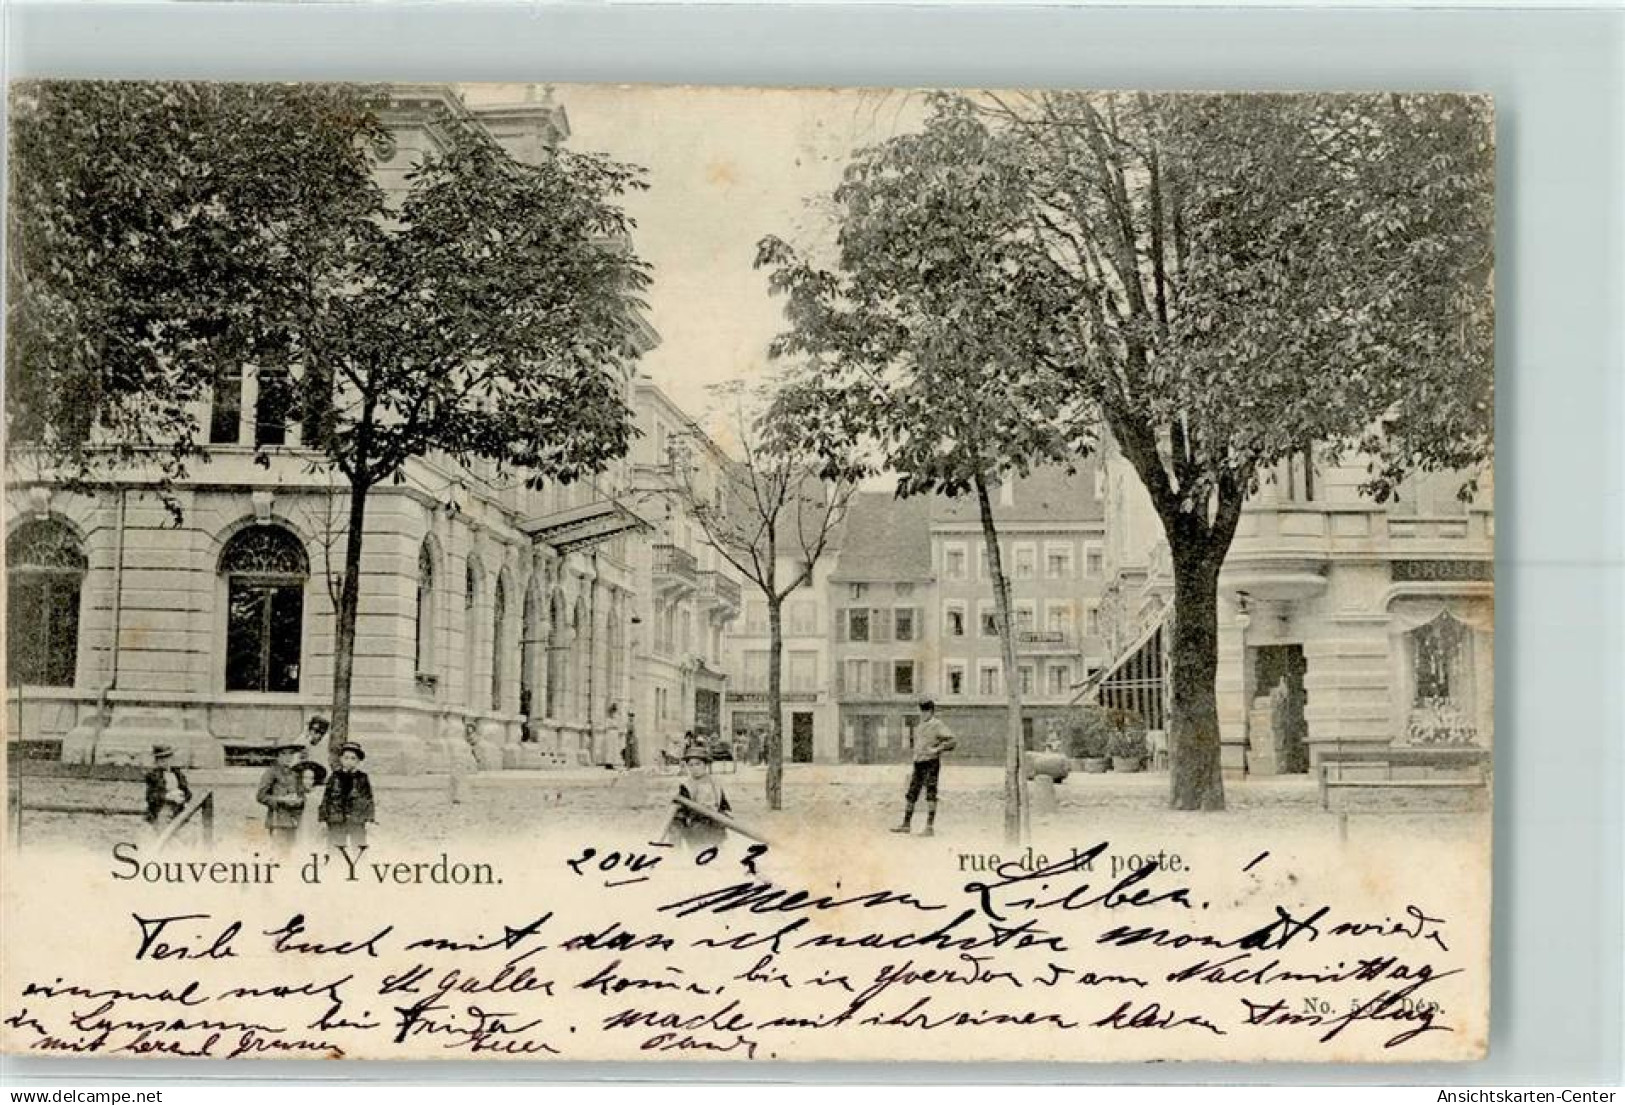 GROSC
Souvenir d'Yverdon.
rue de la poste.
20 VI 02
Meine Lieben!
Teile Euch mit, dass ich nächsten Monat wieder
einmal nach St Gallen kome, bin in Yverdon & am Nachmittag
in Lausanne bei Frieda. mache mit ihr einen kleinen Ausflug
mit herzl Grüssen Euer
No. 5 Dép.
Ansichtskarten-Center